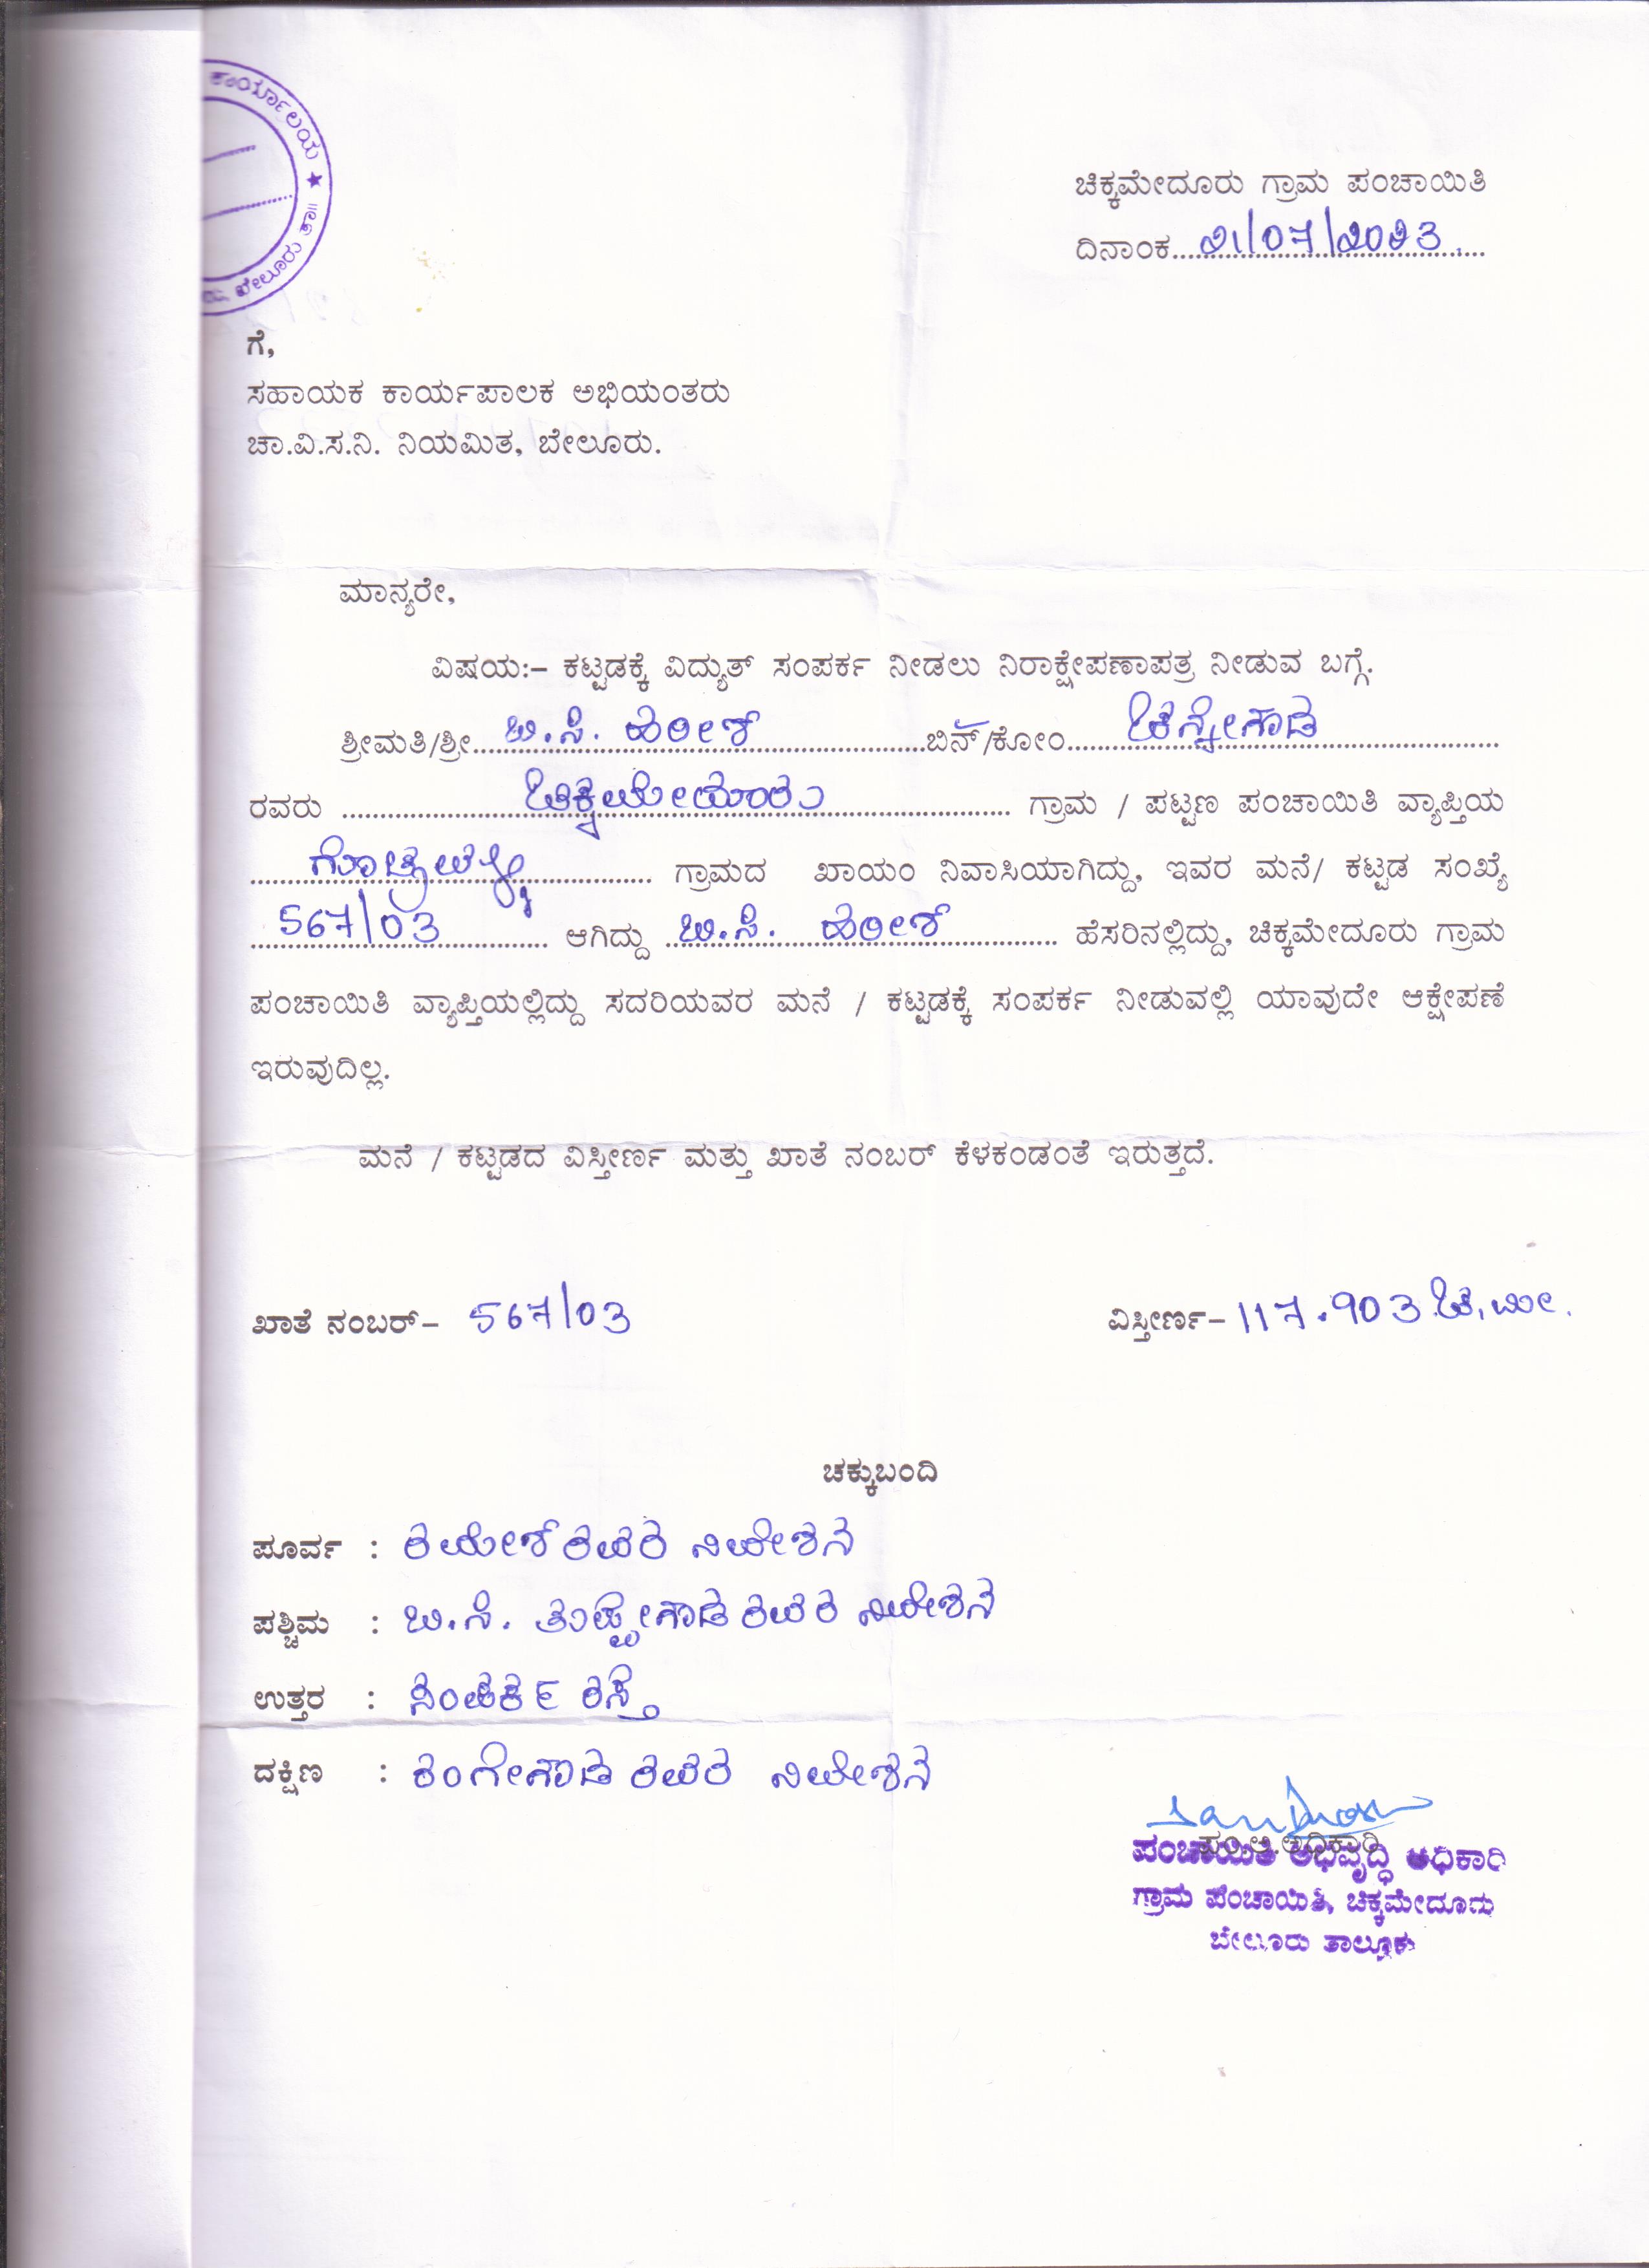 ಕಾರ್ಯಾಲಯ ★
ಬೇಲೂರು ತಾ॥
ಚಿಕ್ಕಮೇದೂರು ಗ್ರಾಮ ಪಂಚಾಯಿತಿ
ದಿನಾಂಕ 21/07/2023
ಗೆ,
ಸಹಾಯಕ ಕಾರ್ಯಪಾಲಕ ಅಭಿಯಂತರು
ಚಾ.ವಿ.ಸ.ನಿ. ನಿಯಮಿತ, ಬೇಲೂರು.
ಮಾನ್ಯರೇ,
ವಿಷಯ:– ಕಟ್ಟಡಕ್ಕೆ ವಿದ್ಯುತ್ ಸಂಪರ್ಕ ನೀಡಲು ನಿರಾಕ್ಷೇಪಣಾಪತ್ರ ನೀಡುವ ಬಗ್ಗೆ.
ಶ್ರೀಮತಿ/ಶ್ರೀ ಬಿ.ಸಿ. ಹರೀಶ್ ಬಿನ್/ಕೋಂ ಚನ್ನೇಗೌಡ
ರವರು ಚಿಕ್ಕಮೇದೂರು ಗ್ರಾಮ / ಪಟ್ಟಣ ಪಂಚಾಯಿತಿ ವ್ಯಾಪ್ತಿಯ
ಗ್ರಾಮದ ಖಾಯಂ ನಿವಾಸಿಯಾಗಿದ್ದು, ಇವರ ಮನೆ/ ಕಟ್ಟಡ ಸಂಖ್ಯೆ
567/03 ಆಗಿದ್ದು ಬಿ.ಸಿ. ಹರೀಶ್ ಹೆಸರಿನಲ್ಲಿದ್ದು, ಚಿಕ್ಕಮೇದೂರು ಗ್ರಾಮ
ಪಂಚಾಯಿತಿ ವ್ಯಾಪ್ತಿಯಲ್ಲಿದ್ದು ಸದರಿಯವರ ಮನೆ / ಕಟ್ಟಡಕ್ಕೆ ಸಂಪರ್ಕ ನೀಡುವಲ್ಲಿ ಯಾವುದೇ ಆಕ್ಷೇಪಣೆ
ಇರುವುದಿಲ್ಲ.
ಮನೆ / ಕಟ್ಟಡದ ವಿಸ್ತೀರ್ಣ ಮತ್ತು ಖಾತೆ ನಂಬರ್ ಕೆಳಕಂಡಂತೆ ಇರುತ್ತದೆ.
ಖಾತೆ ನಂಬರ್– 567/03 ವಿಸ್ತೀರ್ಣ– 117.903 ಚ.ಮೀ.
ಚಕ್ಕುಬಂದಿ
ಪೂರ್ವ : ರಮೇಶ್ ರವರ ನಿವೇಶನ
ಪಶ್ಚಿಮ : ಬಿ.ಸಿ. ತಿಮ್ಮೇಗೌಡ ರವರ ನಿವೇಶನ
ಉತ್ತರ : ಸಂಪರ್ಕ ರಸ್ತೆ
ದಕ್ಷಿಣ : ರಂಗೇಗೌಡ ರವರ ನಿವೇಶನ
ಪಂ.ಅ.ಅಧಿಕಾರಿ
ಪಂಚಾಯಿತಿ ಅಭಿವೃದ್ಧಿ ಅಧಿಕಾರಿ
ಗ್ರಾಮ ಪಂಚಾಯಿತಿ, ಚಿಕ್ಕಮೇದೂರು
ಬೇಲೂರು ತಾಲ್ಲೂಕು